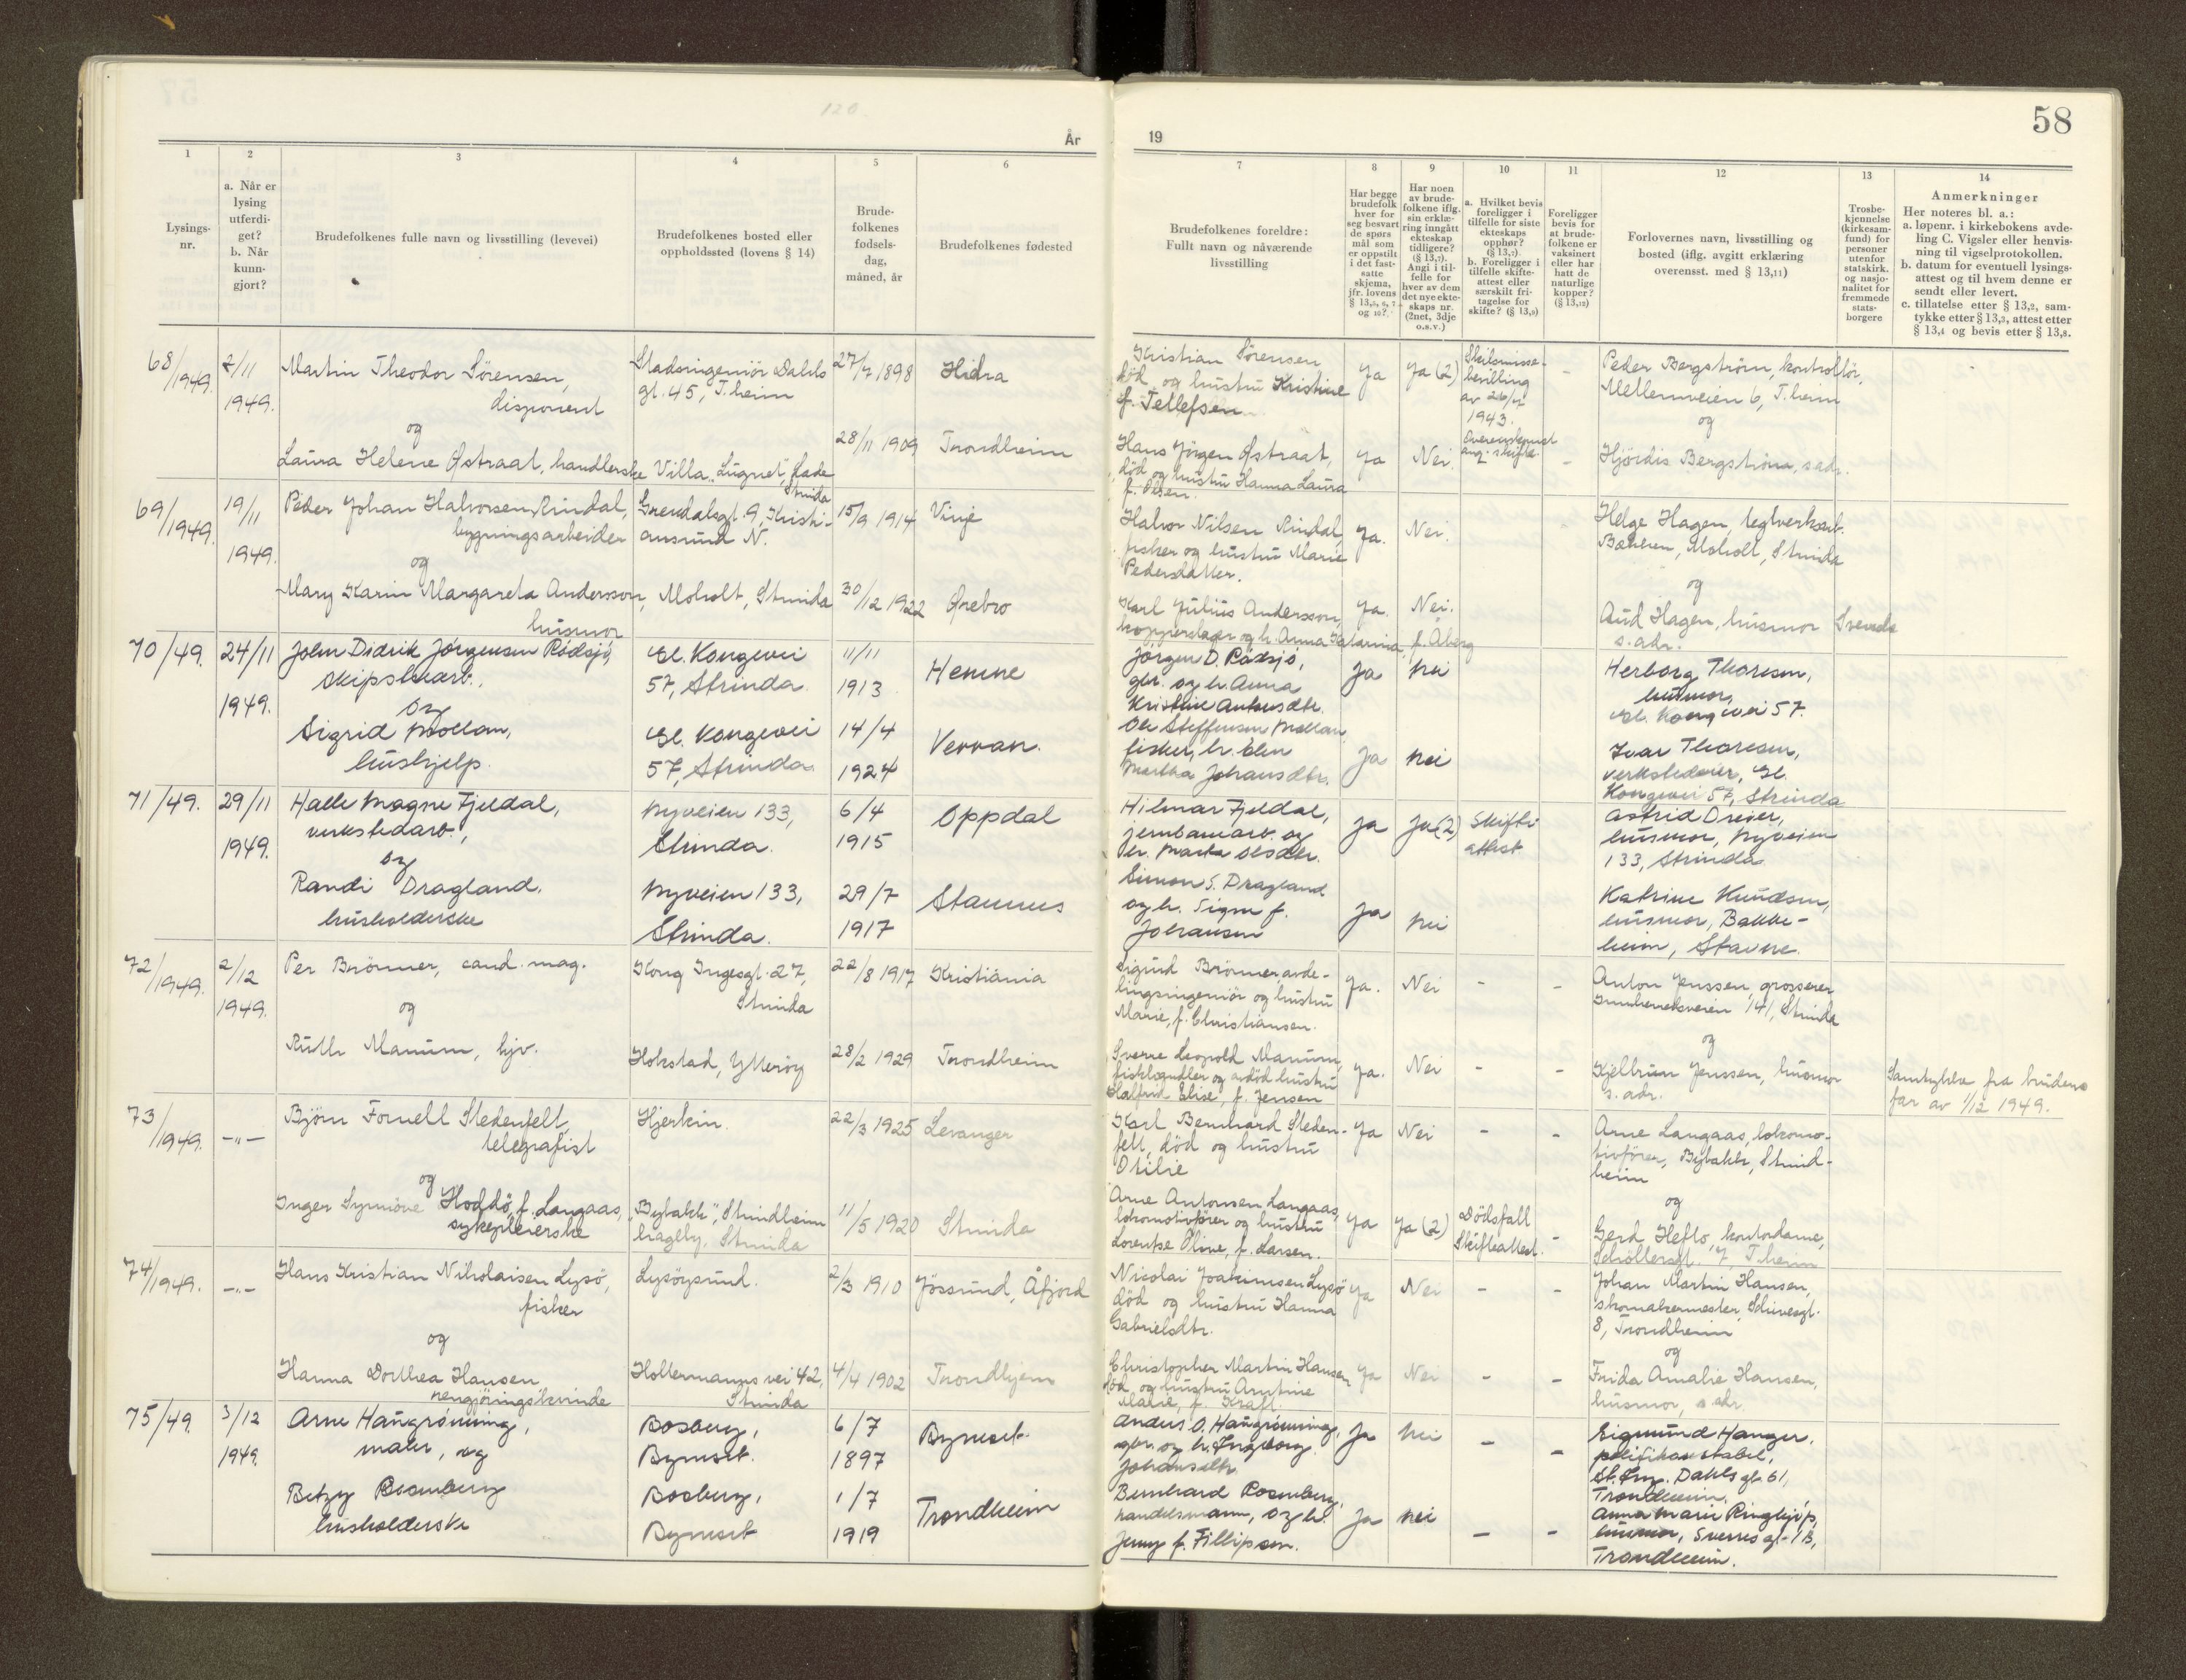 58
120
År
19
1
2
3
4
5
6
7
8
9
10
11
12
13
14
Lysings-
nr.
a. Når er
lysing
utferdi-
get?
b. Når
kunn-
gjort?
Brudefolkenes fulle navn og livsstilling (levevei)
Brudefolkenes bosted eller
oppholdssted (lovens § 14)
Brude-
folkenes
fødsels-
dag,
måned, år
Brudefolkenes fødested
Brudefolkenes foreldre:
Fullt navn og nåværende
livsstilling
Har begge
brudefolk
hver for
seg besvart
de spørs
mål som
er oppstilt
i det fast-
satte
skjema,
jfr. lovens
§ 13,5, 6, 7
og 10?
Har noen
av brude-
folkene iflg.
sin erklæ-
ring inngått
ekteskap
tidligere?
(§ 13,7).
Angi i til-
felle for
hver av dem
det nye ekte-
skaps nr.
(2net, 3dje
o.s.v.)
a. Hvilket bevis
foreligger i
tilfelle for siste
ekteskaps
opphør?
(§ 13,7).
b. Foreligger i
tilfelle skifte-
attest eller
særskilt fri-
tagelse for
skifte? (§ 13,9)
Foreligger
bevis for
at brude-
folkene er
vaksinert
eller har
hatt de
naturlige
kopper?
(§ 13,12)
Forlovernes navn, livsstilling og
bosted (iflg. avgitt erklæring
overensst. med § 13,11)
Trosbe-
kjennelse
(kirkesam-
fund) for
personer
utenfor
statskirk.
og nasjo-
nalitet for
fremmede
stats-
borgere
Anmerkninger
Her noteres bl. a.:
a. løpenr. i kirkebokens avde-
ling C. Vigsler eller henvis-
ning til vigselprotokollen.
b. datum for eventuell lysings-
attest og til hvem denne er
sendt eller levert.
c. tillatelse etter § 13,2, sam-
tykke etter § 13,3, attest etter
§ 13,4 og bevis etter § 13,8.
68/1949.
2/11
1949.
Martin Theodor Sörensen,
disponent
og
Laura Helene Østraat, handlerske
Stadsingeniör Dahls
gt. 45, T.heim
Villa "Lugnet", Lade
Strinda
27/7 1898
28/11 1909
Hidra
Trondheim
Kristian Sörensen
död og hustru Kristine
f. Tellefsen
Hans Jörgen Østraat,
död og hustru Hanna Laura
f. Olsen
Ja
Ja
Ja (2)
Nei.
Skilsmisse-
bevilling
av 26/7
1943.
Overenskomst
ang. skifte
-
-
Peder Bergström, kontrollör,
Mellemveien 6, T.heim
og
Hjördis Bergström, s.adr.
69/1949.
19/11
1949.
Peder Johan Halvorsen Rindal,
bygningsarbeider
og
Mary Karin Margareta Andersson,
husmor
Grendalsgt. 9, Kristi-
ansund N.
Moholt, Strinda
15/9 1914
30/12 1922
Vinje
Ørebro
Halvor Nilsen Rindal,
fisker og hustru Marie
Pedersdatter.
Karl Julius Andersson,
kopperslager og h. Anna Katarina, f. Åberg
Ja.
Ja.
Nei.
Nei.
Helge Hagen, teglverksarb.
Bakken, Moholt, Strinda
og
Aud Hagen, husmor
s.adr.
Svensk
70/49.
24/11
1949.
John Didrik Jørgensen Rødsjø,
skipsbarb.,
og
Sigrid Mollan,
hushjelp.
Gl. Kongevei
57, Strinda.
Gl. Kongevei
57, Strinda.
11/11
1913
14/4
1924
Hemne
Verran.
Jørgen D. Rødsjø,
gbr. og h. Anna
Kristine Antonsdtr.
Ole Steffensen Mollan,
fisker, h. Elen
Martha Johansdtr.
Ja
Ja
nei
nei
Herborg Thoresen,
husmor,
Gl. Kongevei 57.
Ivar Thoresen,
verkstedeier, Gl.
Kongevei 57, Strinda
71/49.
29/11
1949.
Halle Magne Fjeldal,
verkstedarb.,
og
Randi Dragland,
husholderske
Nyveien 133,
Strinda.
Nyveien 133,
Strinda.
6/4
1915
29/7
1917
Oppdal
Stamnes
Hilmar Fjeldal,
jernbanearb. og
h. Marta Olsdtr.
Simon S. Dragland
og h. Signe f.
Johansen
Ja
Ja
Ja (2)
nei
Skifte
attest
Astrid Dreier,
husmor, Nyveien
133, Strinda
Katrine Knudsen,
husmor, Bakke-
heim, Stavne.
72/1949.
2/12
1949.
Per Brönner, cand. mag.
og
Ruth Manum, hjv.
Kong Ingesgt. 27,
Strinda
Hokstad, Ytteröy
22/8 1917
28/2 1929
Kristiania
Trondheim
Sigurd Brönner avde-
lingsingeniör og hustru
Marie, f. Christiansen.
Sverre Leopold Manum,
fiskehandler og avdöd hustru
Halfrid Elise, f. Jensen
Ja.
Ja.
Nei
Nei
-
-
-
-
Anton Jenssen, grosserer
Innherredsveien 141, Strinda
og
Kjellrun Jenssen, husmor
s.adr.
Samtykke fra brudens
far av 1/12 1949.
73/1949.
-"-
Björn Fornell Stedenfelt,
telegrafist
og
Inger Synnöve Hoddö, f. Langaas,
sykepleierske
Hjerkin.
"Bybakk", Strindheim
hageby, Strinda
22/3 1925
11/5 1920
Levanger
Strinda
Karl Bernhard Steden-
felt, död og hustru
Otilie
Arne Antonsen Langaas,
lokomotivförer og hustru
Lorentse Oline, f. Larsen.
Ja
Ja
Nei
Ja (2)
-
Dödsfall
Skifteattest.
-
-
Arne Langaas, lokomo-
tivförer, Bybakk, Strind-
heim
og
Gerd Hefto, kontordame,
Schöllersgt. 7, T.heim
74/1949.
-"-
Hans Kristian Nikolaisen Lysö,
fisker
og
Hanna Dorthea Hansen
rengjöringskvinde
Lysöysund.
Holtermanns vei 42,
Strinda
2/3 1910
4/4 1902
Jössund, Åfjord
Trondhjem
Nicolai Joakimsen Lysö
död og hustru Hanna
Gabrielsdtr.
Christopher Martin Hansen
död og hustru Arntine
Malie, f. Kraft
Ja
Ja
Nei
Nei
-
-
-
-
Johan Martin Hansen,
skomakermester, Schivesgt.
8, Trondheim
og
Frida Amalie Hansen,
husmor, s.adr.
75/49.
3/12
1949.
Arne Haugrønning,
maler, og
Betzy Rosenberg
husholderske
Bosberg,
Byneset.
Bosberg,
Byneset
6/7
1897
1/7
1919
Byneset.
Trondheim
Anders O. Haugrønning,
gbr. og h. Ingeborg
Johansdtr.
Bernhard Rosenberg,
handelsmann, og h.
Jenny f. Fillipsen.
Ja
Ja
nei
nei
-
-
-
-
Sigmund Hanger,
politikonstabel,
St.Ing. Dahls gt. 61,
Trondheim.
Anna Marie Ringhjøp,
husmor, Sverres gt. 1B,
Trondheim.